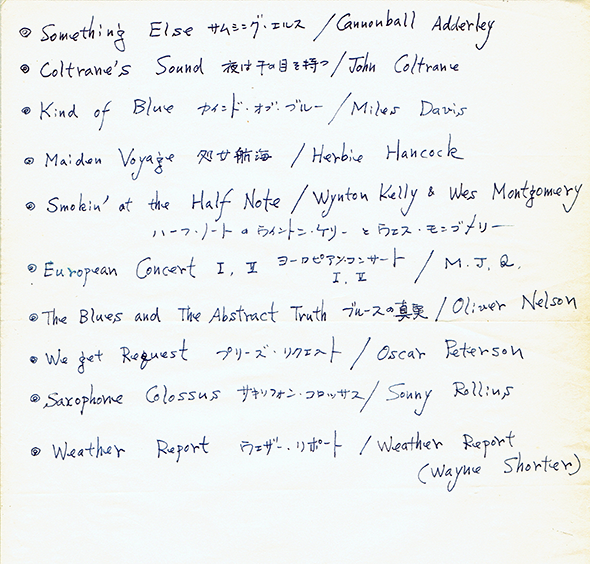 ◎ Something Else サムシング・エルス / Cannonball Adderley
◎ Coltrane's Sound 夜は千の目を持つ / John Coltrane
◎ Kind of Blue カインド・オブ・ブルー / Miles Davis
◎ Maiden Voyage 処女航海 / Herbie Hancock
◎ Smokin' at the Half Note / Wynton Kelly & Wes Montgomery
ハーフ・ノートのウイントン・ケリーとウェス・モンゴメリー
◎ European Concert I, II ヨーロピアン・コンサート I, II / M.J.Q.
◎ The Blues and The Abstract Truth ブルースの真実 / Oliver Nelson
◎ We get Request プリーズ・リクエスト / Oscar Peterson
◎ Saxophone Colossus サキソフォン・コロッサス / Sonny Rollins
◎ Weather Report ウェザー・リポート / Weather Report
(Wayne Shorter)